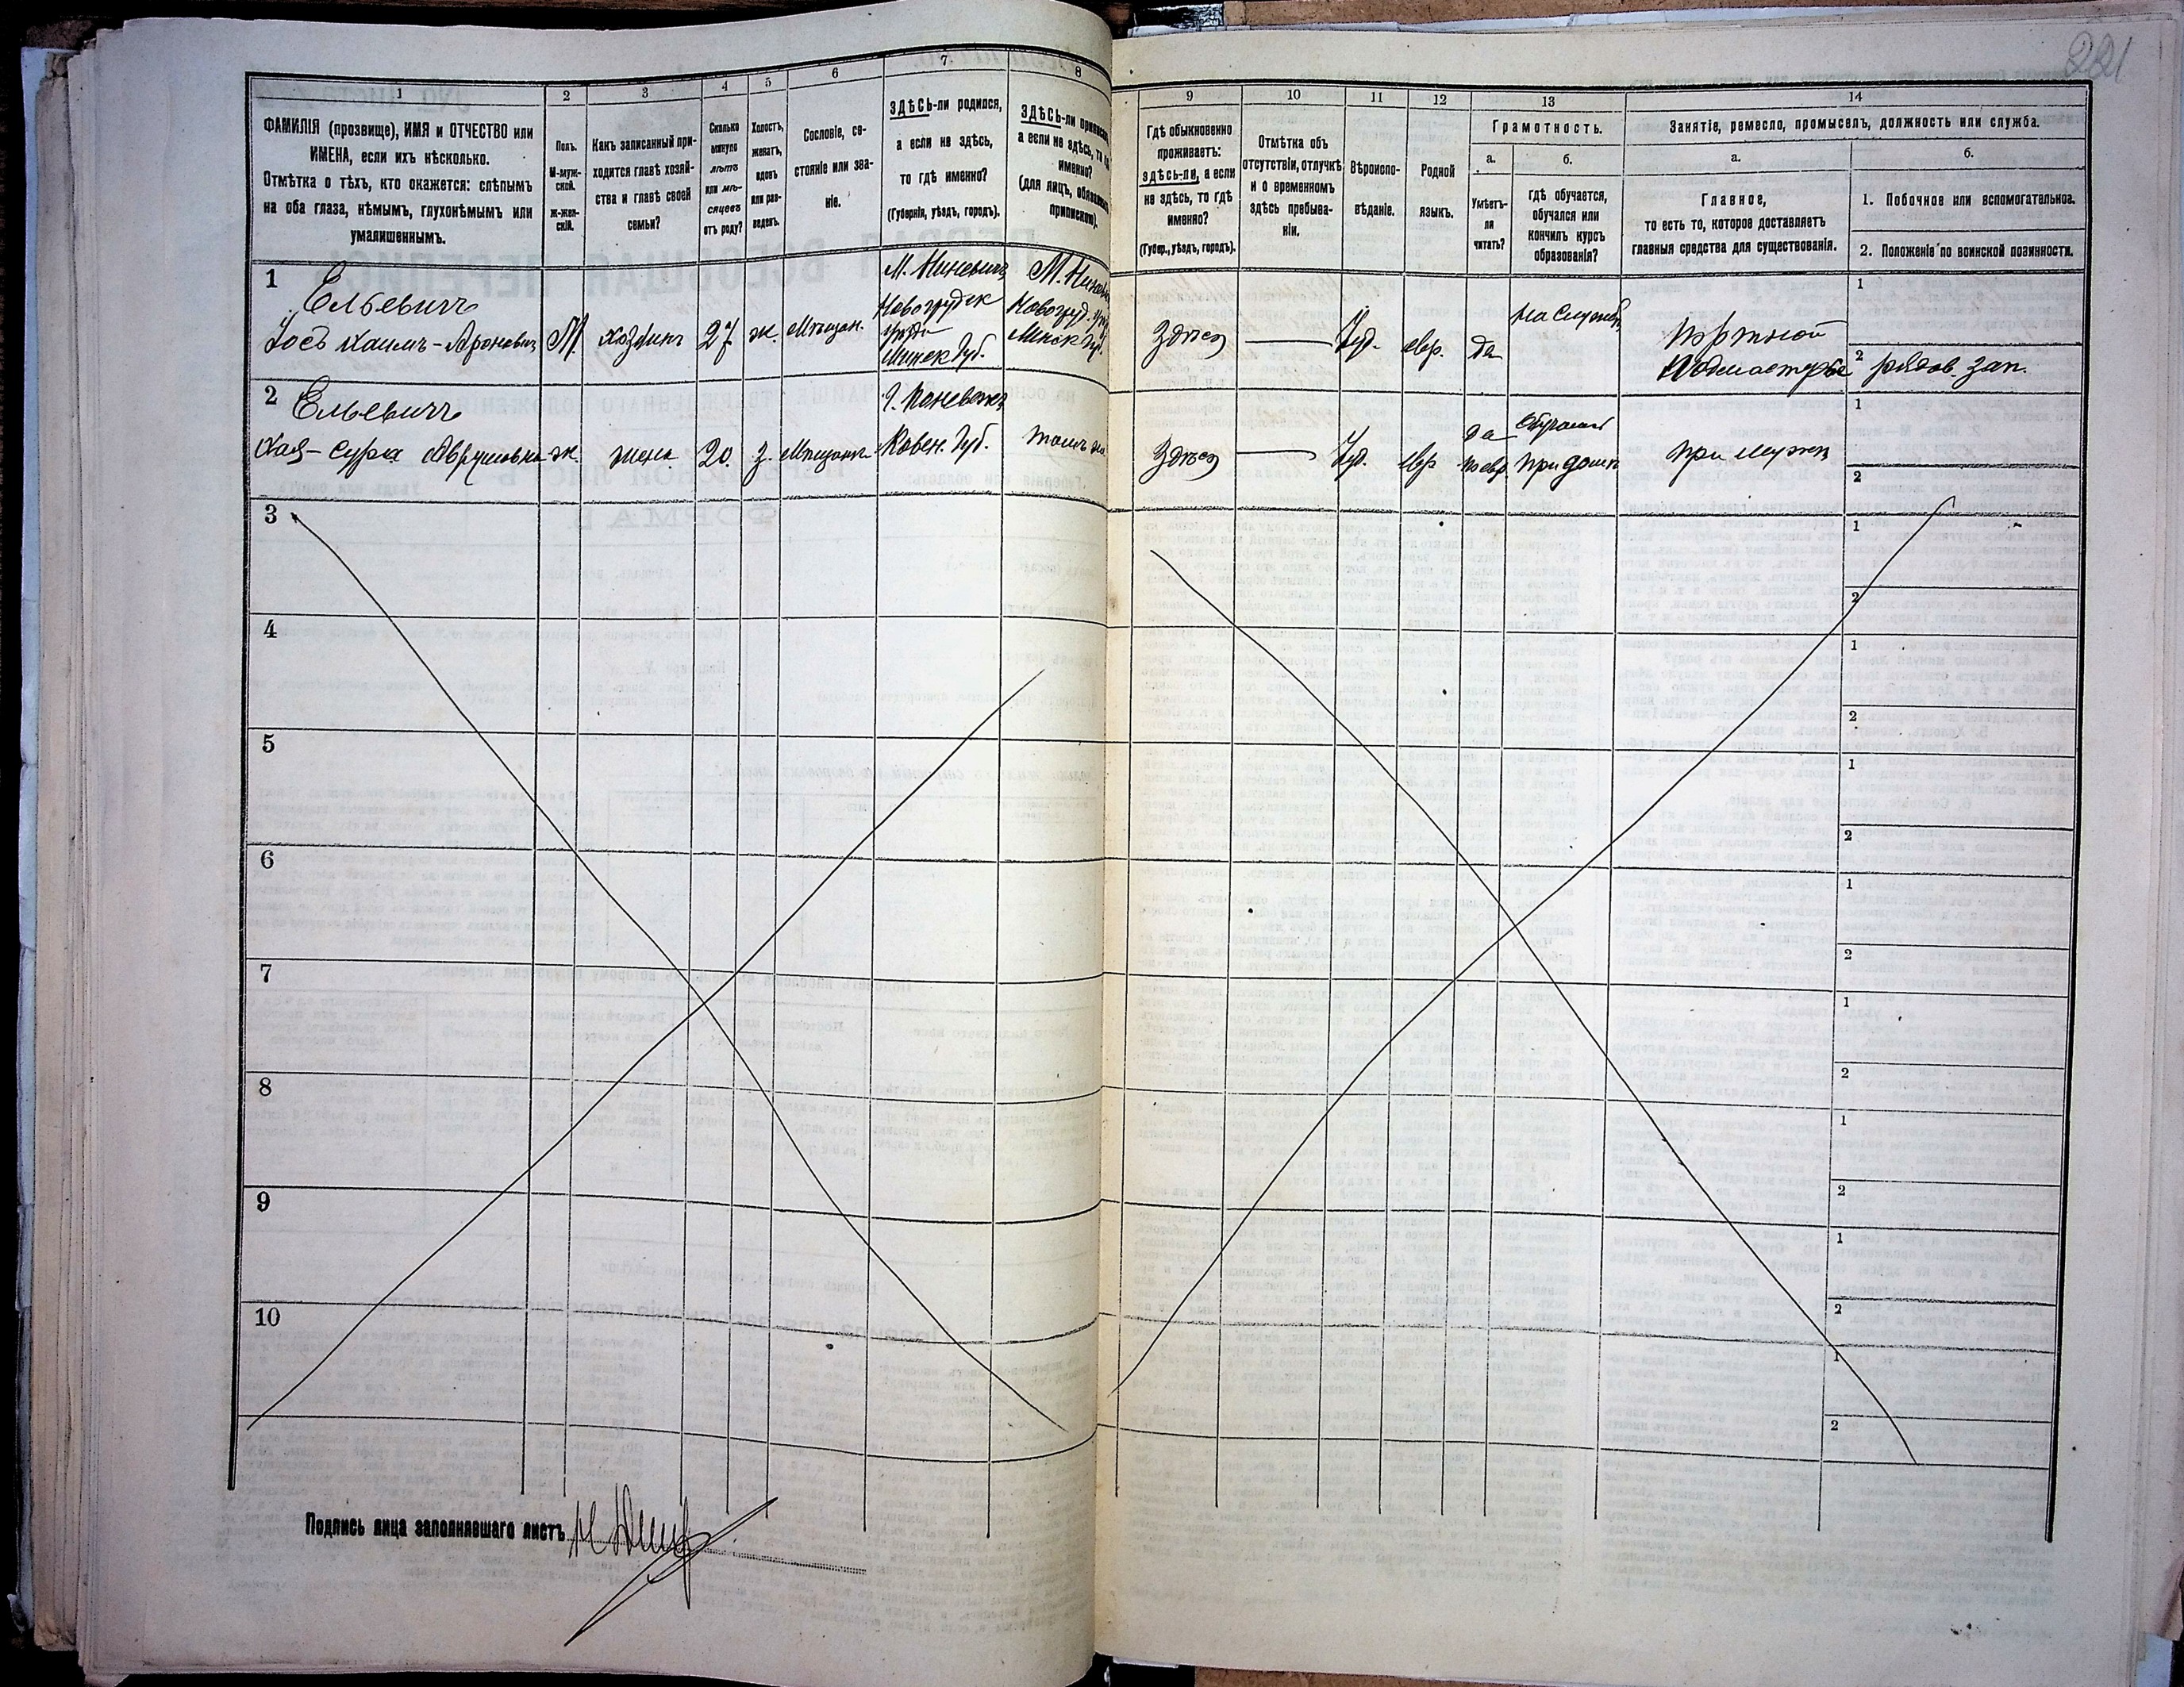 221
1
ФАМИЛІЯ (прозвище), ИМЯ и ОТЧЕСТВО или
ИМЕНА, если ихъ нѣсколько.
Отмѣтка о тѣхъ, кто окажется: слѣпымъ
на оба глаза, нѣмымъ, глухонѣмымъ или
умалишеннымъ.
2
Полъ.
М-муж-
ской.
Ж-жен-
скій.
3
Какъ записанный при-
ходится главѣ хозяй-
ства и главѣ своей
семьи?
4
Сколько
минуло
лѣтъ
или мѣ-
сяцевъ
отъ роду?
5
Холостъ,
женатъ,
вдовъ
или раз-
веденъ.
6
Сословіе, со-
стояніе или зва-
ніе.
7
ЗДѢСЬ-ли родился,
а если не здѣсь,
то гдѣ именно?
(Губернія, уѣздъ, городъ).
8
ЗДѢСЬ-ли приписанъ,
а если не здѣсь, то гдѣ
именно?
(для лицъ, обязанныхъ
припискою).
9
Гдѣ обыкновенно
проживаетъ:
здѣсь-ли, а если
не здѣсь, то гдѣ
именно?
(Губер., уѣздъ, городъ).
10
Отмѣтка объ
отсутствіи, отлучкѣ
и о временномъ
здѣсь пребыва-
ніи.
11
Вѣроиспо-
вѣданіе.
12
Родной
языкъ.
13
Грамотность.
а.
Умѣетъ-
ли
читать?
б.
Гдѣ обучается,
обучался или
кончилъ курсъ
образованія?
14
Занятіе, ремесло, промыселъ, должность или служба.
а.
Главное,
то есть то, которое доставляетъ
главныя средства для существованія.
б.
1. Побочное или вспомогательное.
2. Положеніе по воинской повинности.
1
Ельевичъ
Іосъ Хаимъ-Ароновичъ
М.
хозяинъ
27
ж.
Мѣщан.
Новогрудск
уѣзда
Минск Губ.
Новогруд. уѣз.
Минск Губ.
Здѣсь
Іуд.
евр.
да
на службѣ
портной
подмастерье
1
2
рядов. зап.
2
Ельевичъ
Хая-Сура Абрумовна
ж.
жена
20.
З.
Мѣщанка
Г. Поневежъ
Ковен. Губ.
тамъ же
Здѣсь
Іуд.
евр
да
по евр.
обучалась
при домѣ
при мужѣ
1
2
3
1
2
4
1
2
5
1
2
6
1
2
7
1
2
8
1
2
9
1
2
10
1
2
Подпись лица заполнявшаго листъ